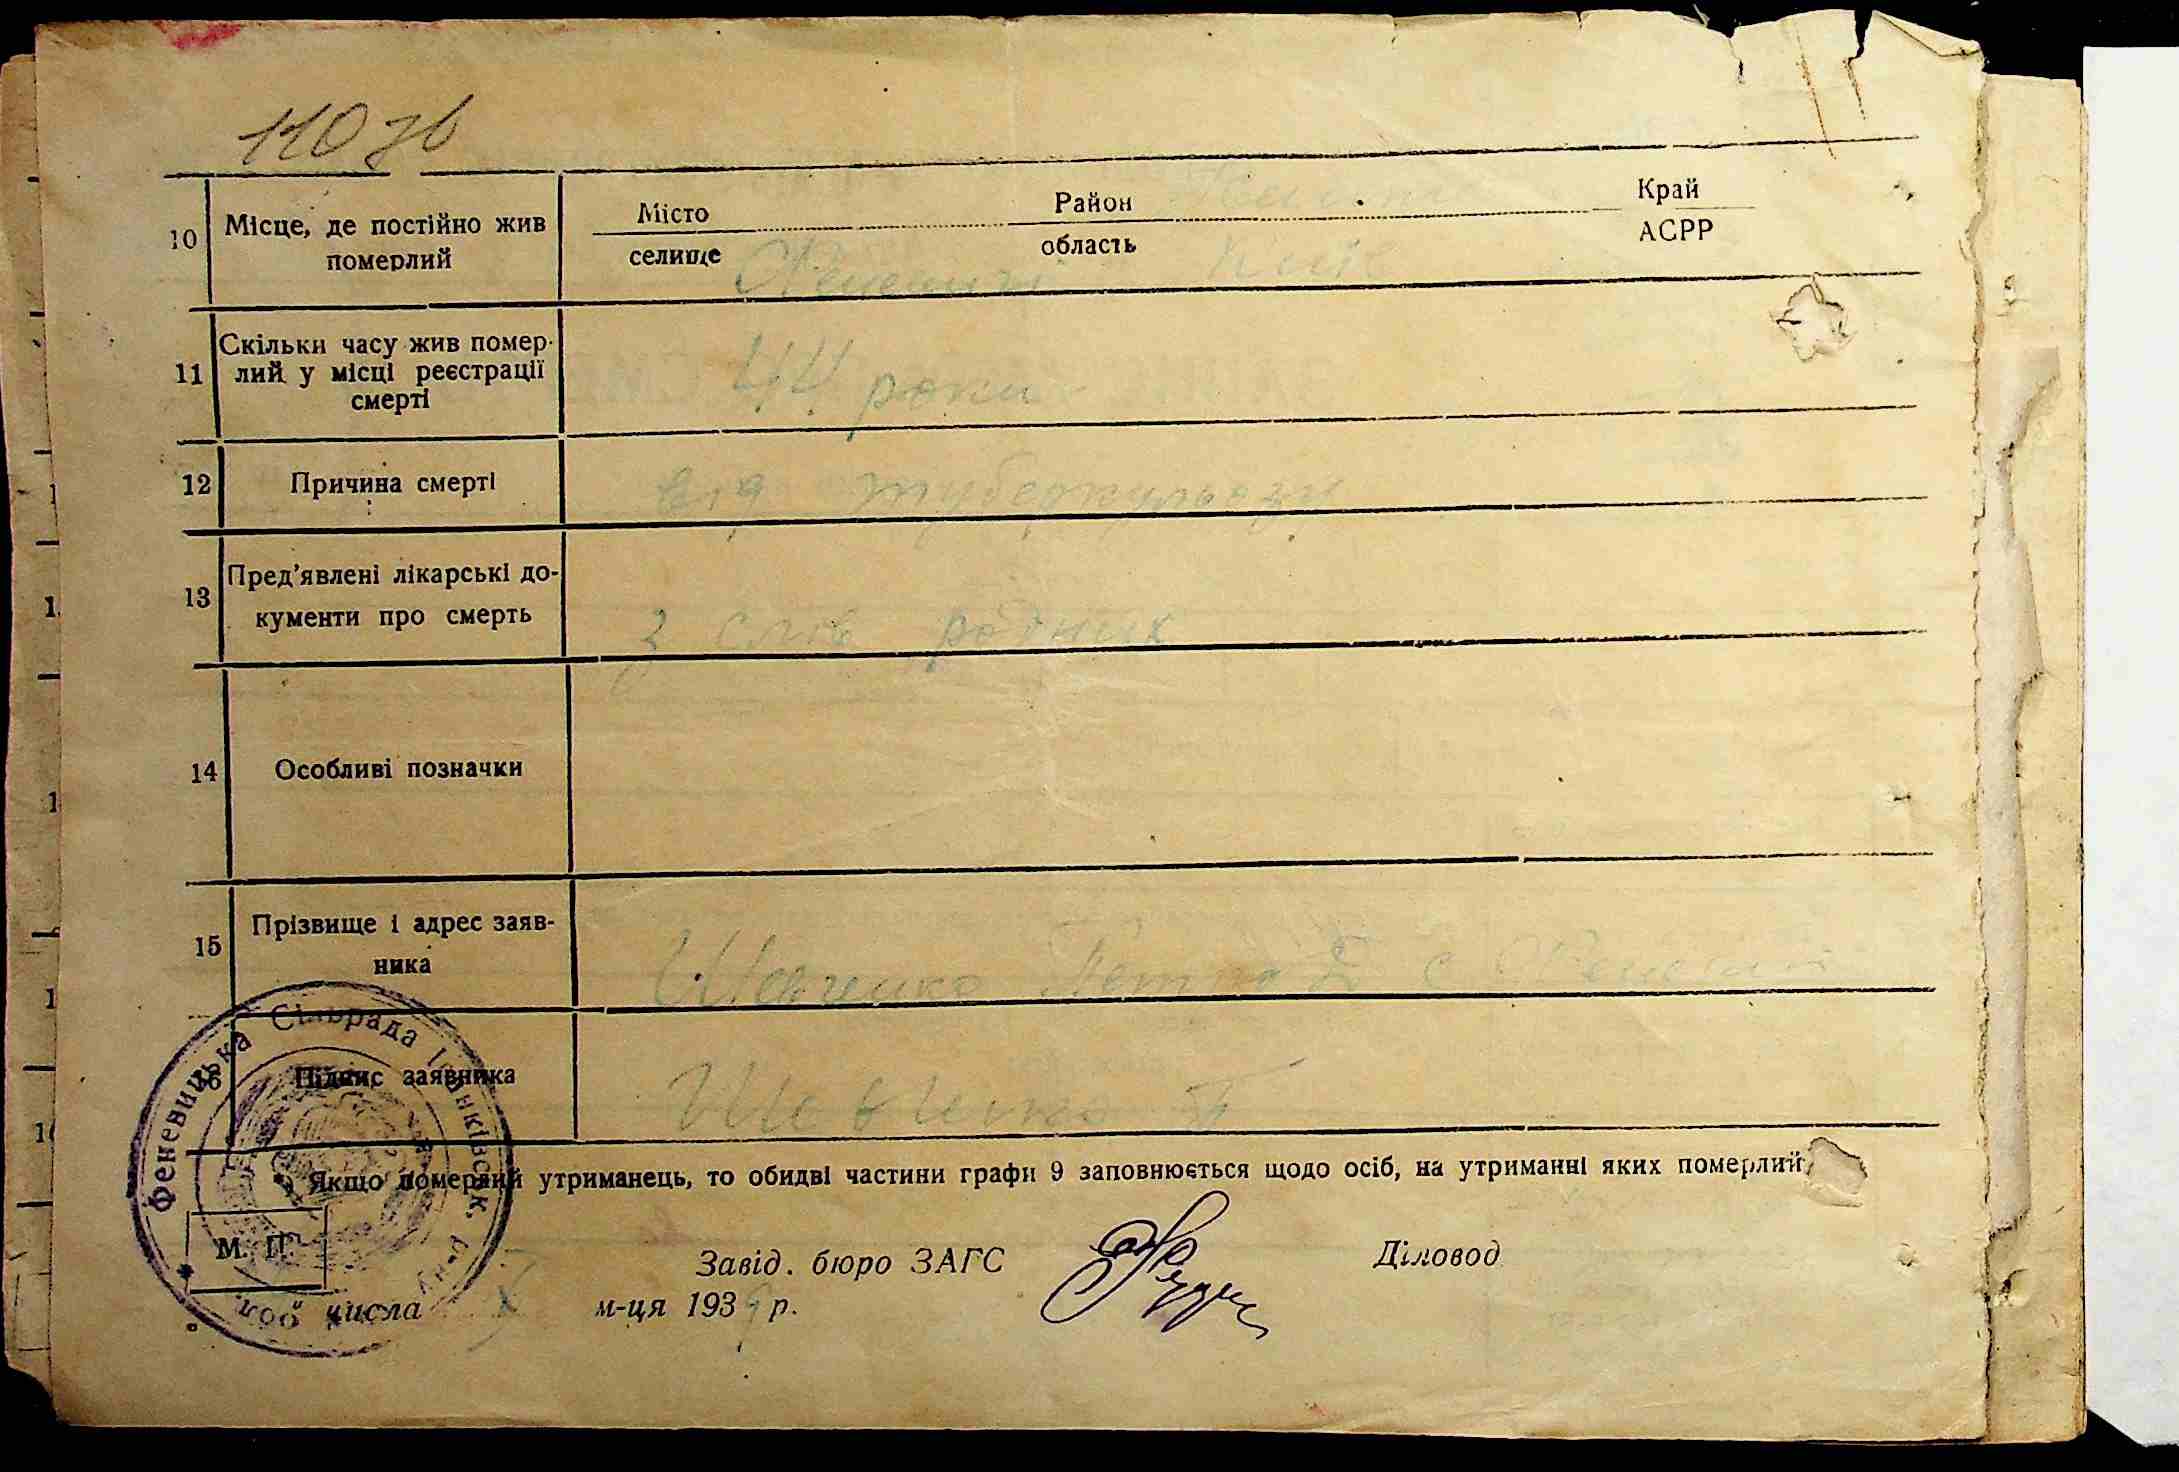 110 зв
10 Місце, де постійно жив померлий
Місто селище Феневичі
Район область
Край АСРР
11 Скільки часу жив помер-
лий у місці реєстрації
смерті
44 роки
12 Причина смерті
від туберкульозу
13 Пред'явлені лікарські до-
кументи про смерть
з слів родних
14 Особливі позначки
15 Прізвище і адрес заяв-
ника
Шевченко Петро с Феневичі
16 Підпис заявника
Шевченко П
Якщо померлий утриманець, то обидві частини графи 9 заповнюється щодо осіб, на утриманні яких померлий
М. П.
Завід. бюро ЗАГС
Діловод
числа X м-ця 1939 р.
Феневицька Сільрада Іванківськ. р-ну